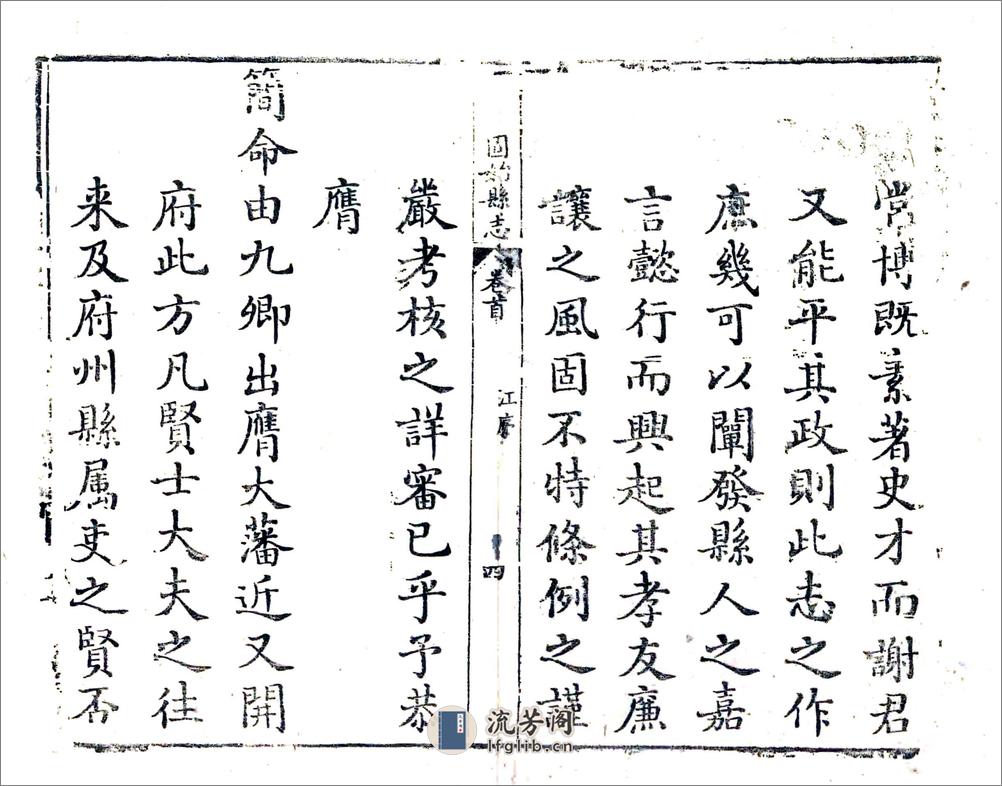 常博既素著史才而謝君
又能平其政則此志之作
庶幾可以闡發縣人之嘉
言懿行而興起其孝友廉
讓之風固不特條例之謹
固始縣志 卷首 江序 四
嚴考核之詳審已乎予恭
膺
簡命由九卿出膺大藩近又開
府此方凡賢士大夫之往
来及府州縣属吏之賢否
流芳阁
lfglib.cn